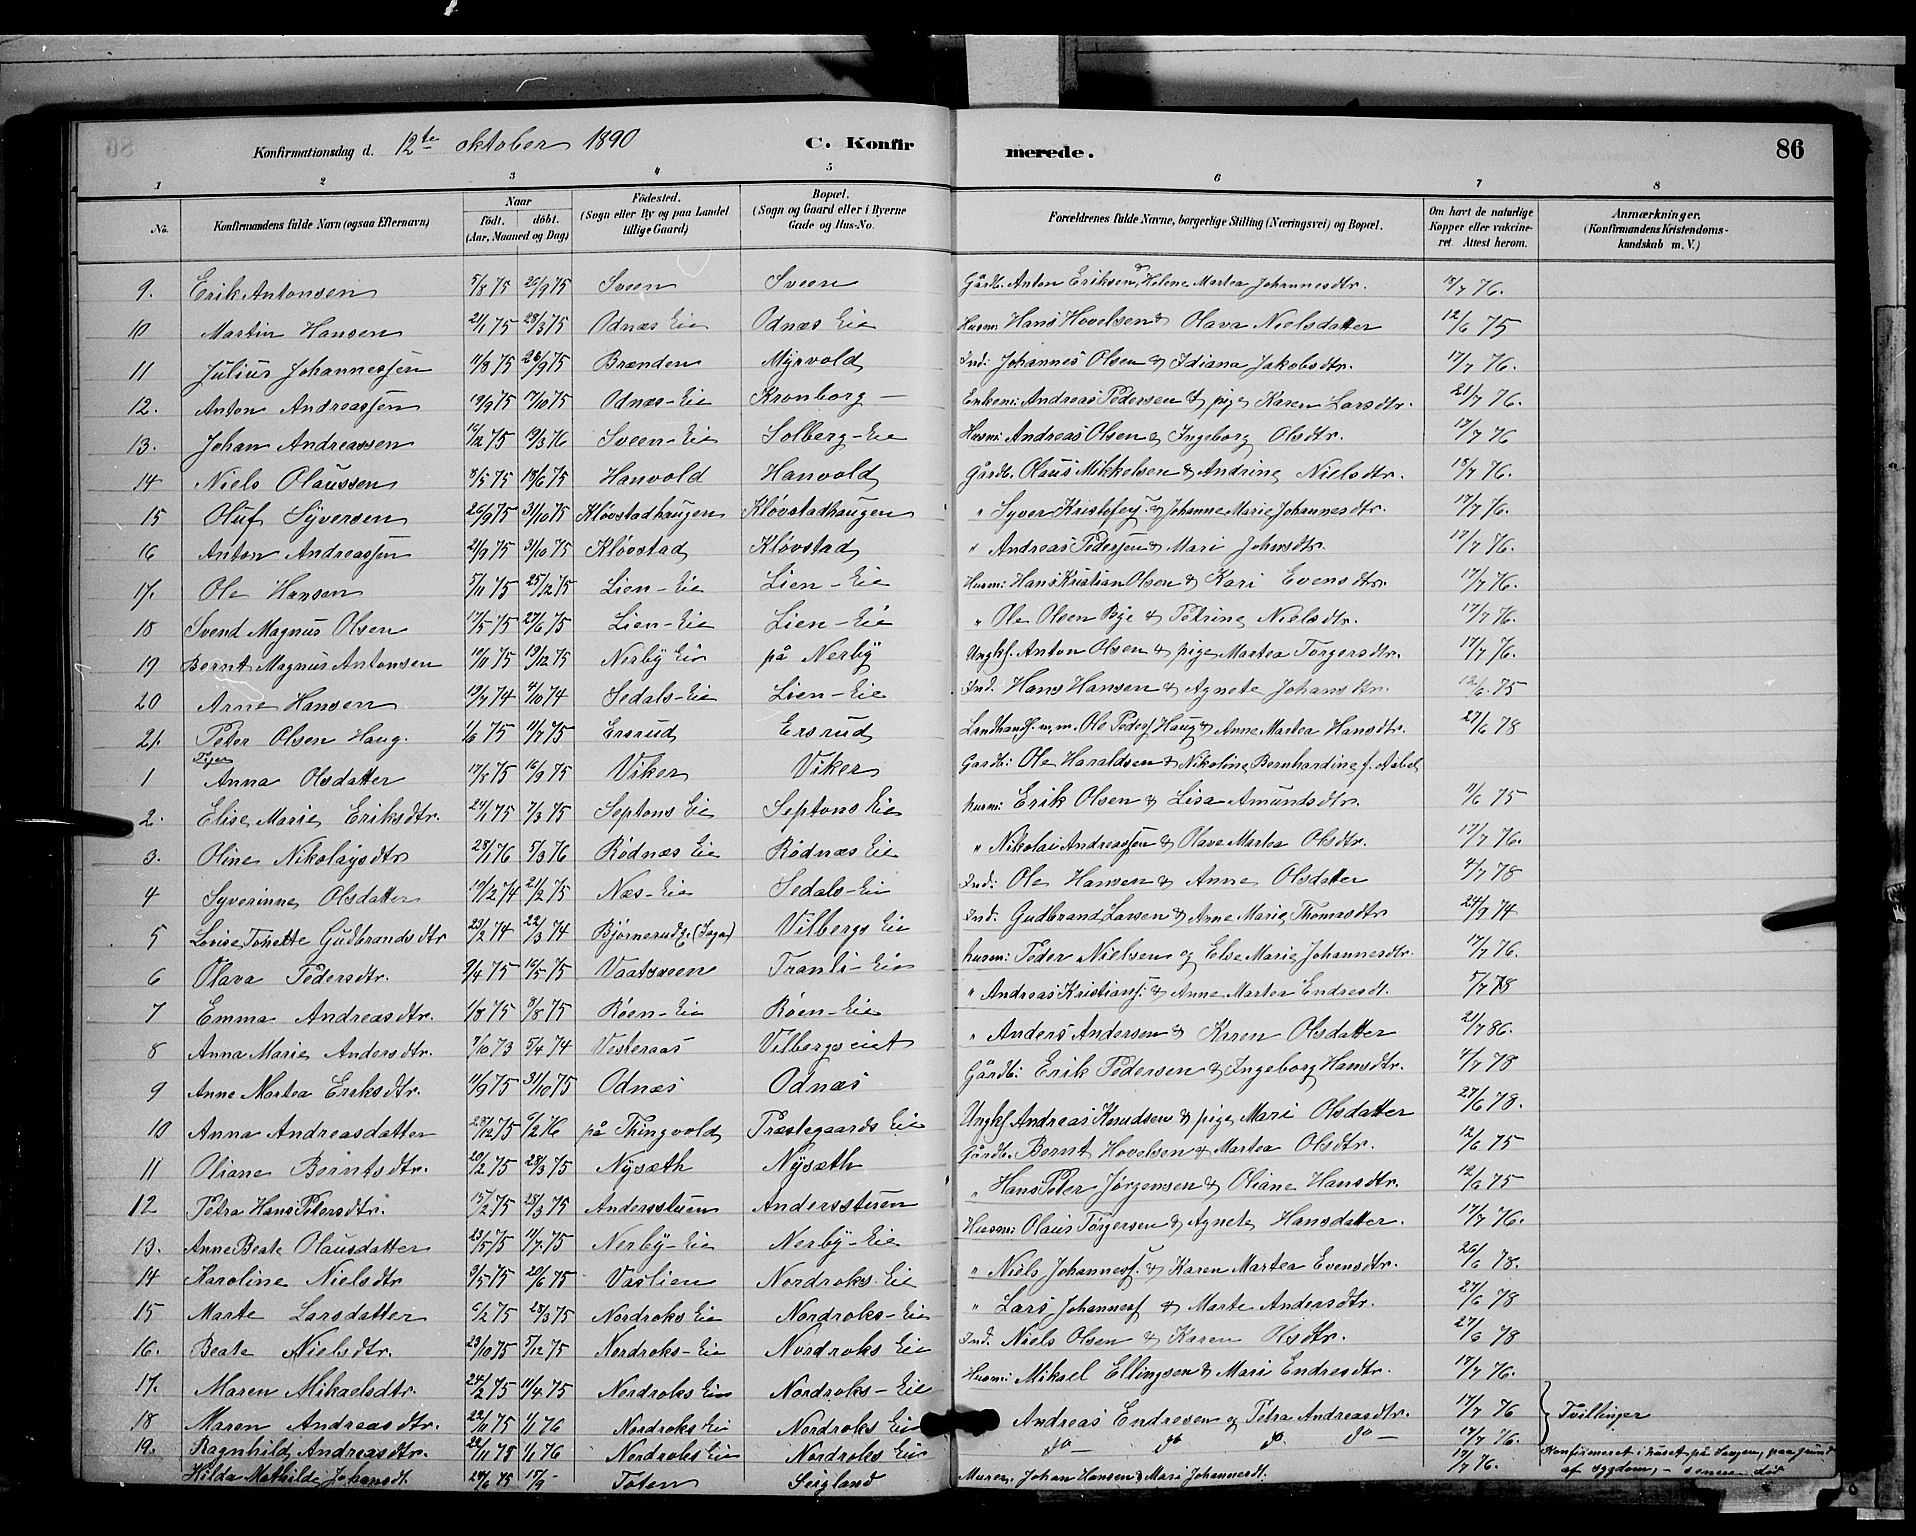 Konfirmationsdag d. 12te oktober 1890 C. Konfirmerede. 86
1 2 3 4 5 6 7 8
No. Konfirmandens fulde Navn (ogsaa Efternavn) Naar født. døbt. (Aar, Maaned og Dag) Fødested. (Sogn eller By og paa Landet tillige Gaard) Bopæl. (Sogn og Gaard eller i Byerne Gade og Hus-No. Forældrenes fulde Navne, borgerlige Stilling (Næringsvei) og Bopæl. Om havt de naturlige Kopper eller vakcineret. Attest herom. Anmærkninger. (Konfirmandens Kristendomskundskab m. V.)
9. Erik Antonsen 5/8 75 26/9 75 Sveen Sveen Gårdb. Anton Eriksen & Helene Martea Johannesdtr. 18/7 76.
10 Martin Hansen 21/1 75 28/3 75 Odnæs Eie Odnæs Eie Husm: Hans Hovelsen & Olava Nielsdatter 12/6 75
11 Julius Johannessen 11/8 75 26/9 75 Brænden Myrvold Ind: Johannes Olsen & Idiana Jakobsdtr. 17/7 76.
12. Anton Andreassen 19/9 75 17/10 75 Odnæs-Eie Kronborg - Enkem: Andreas Pedersen & pige Karen Larsdtr. 21/7 76.
13. Johan Andreassen 16/12 75 19/3 76 Sveen-Eie Solberg-Eie Husm: Andreas Olsen & Ingeborg Olsdtr. 17/7 76
14 Niels Olaussen 8/5 75 13/6 75 Hanvold Hanvold Gårdb. Olaus Mikkelsen & Andrine Nielsdtr. 18/7 76.
15 Oluf Syversen 26/9 75 31/10 75 Kløvstadhaugen Kløvstadhaugen " Syver Kristofers. & Johanne Marie Johannesdtr. 17/7 76.
16 Anton Andreassen 21/9 75 31/10 75 Kløvstad Kløvstad " Andreas Pedersen & Mari Johnsdtr. 17/7 76.
17. Ole Hansen 5/11 75 25/12 75 Lien-Eie Lien-Eie Husm: Hans Kristian Olsen & Kari Evensdtr. 17/7 76.
18 Svend Magnus Olsen 17/5 75 27/6 75 Lien-Eie Lien-Eie " Ole Olsen Bye & Petrine Nielsdtr. 17/7 76.
19 Bernt Magnus Antonsen 10/11 75 19/12 75 Nerby Eie på Nerby Ungkf. Anton Olsen & pige Martea Torgersdtr. 17/7 76.
20 Arne Hansen 19/7 74 4/10 74 Sedals-Eie Lien-Eie Ind. Hans Hansen & Agnete Johansdtr. 12/6 75
21. Peter Olsen Haug. 1/6 75 11/7 75 Ersrud Ersrud Landhandl. m.m. Ole Peders. Haug & Anne Martea Hansdtr. 27/6 78
Piger
1 Anna Olsdatter 17/8 75 16/9 75 Viker Viker Gardb: Ole Haraldsen & Nikoline Bernhardine f. Aabel
2. Elise Marie Eriksdtr. 24/1 75 7/3 75 Septons Eie Septons Eie husm: Erik Olsen & Lisa Amundsdtr. 11/6 75
3. Oline Nikolaysdtr 28/1 76 5/3 76 Rødnæs Eie Rødnæs Eie " Nikolai Andreassen & Olave Martea Olsdtr. 17/7 76.
4 Syverinne Olsdatter 19/12 74 21/2 75 Næs-Eie Sedals-Eie Ind: Ole Hansen & Anne Olsdatter 4/7 78
5 Lovise Tonette Gudbrandsdtr 23/2 74 22/3 74 Bjørnerud (Saga) Vilbergs Eie Ind. Gudbrand Larsen & Arne Marie Thomasdtr 24/9 74
6 Olava Pedersdtr. 9/4 75 16/5 75 Vaatsveen Tranli-Eie husm: Peder Nielsen og Else Marie Johannesdtr. 17/7 76.
7 Emma Andreasdtr. 1/8 75 8/8 75 Røen-Eie Røen-Eie " Andreas Kristians. & Anne Martea Endresdt. 5/7 78
8 Anna Marie Andersdtr. 7/10 73 5/4 74 Vesteraas Vilbergseiet " Anders Andersen & Karen Olsdatter 21/7 86.
9 Anne Martea Eriksdtr. 11/9 75 31/10 75 Odnæs Odnæs Gårdb: Erik Pedersen & Ingeborg Hansdtr. 4/7 78
10 Anna Andreasdatter 28/12 75 6/2 76 på Thingvold Præstegaards Eie Ungkf. Andreas Knudsen & pige Mari Olsdatter 27/6 78.
11 Oliane Berntsdtr. 20/2 75 28/3 75 Nysæth Nysæth Gårdb. Bernt Hovelsen & Martea Olsdtr. 12/6 75
12 Petra Hans Petersdtr. 15/2 75 28/3 75 Andersstuen Andersstuen " Hans Peter Jørgensen & Oliane Hansdtr. 12/6 75
13. Anne Beate Olausdatter 23/5 75 11/7 75 Nerby-Eie Nerby-Eie Husm: Olaus Torgersen & Agnete Hansdatter. 17/7 76.
14 Karoline Nielsdtr 9/5 75 20/6 75 Vaslien Nordroks Eie " Niels Johanness. & Karen Martea Evensdtr. 26/6 78.
15 Marte Larsdatter 6/2 75 28/3 75 Nordroks Eie Nordroks-Eie " Lars Johanness & Marte Andersdtr. 27/6 78
16. Beate Nielsdtr. 23/10 75 5/12 75 Nordroks-Eie Nordroks Eie Ind. Niels Olsen & Karen Olsdtr. 27/6 78
17. Maren Mikaelsdtr. 24/2 75 11/4 75 Nordroks Eie Nordroks-Eie Husm: Mikael Ellingsen & Mari Endresdtr. 17/7 76.
18 Maren Andreasdtr. 22/11 75 1/1 76 Nordroks Eie Nordroks Eie Andreas Endresen og Petra Andreasdtr. 17/7 76 Tvillinger
19. Ragnhild Andreasdtr. 22/11 75 1/1 76 Nordroks Eie Nordroks Eie do do do do - 17/7 76.
Hilda Mathilde Johansdt. 29/6 75 15/9 - Toten Seigland Murer Johan Hansen & Mari Johannesdt. 17/7 76. Konfirmeret i huset på Haugen, paa grund af sygdom, - senere død